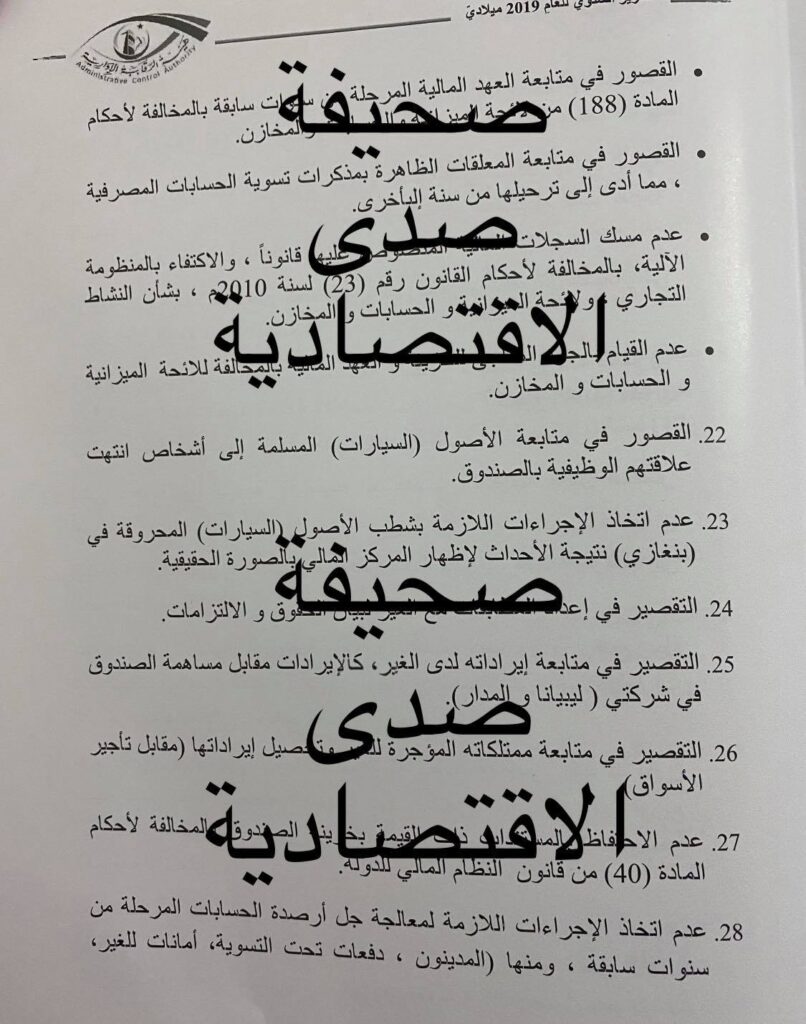 للعام 2019 ميلادي
Administrative Control Authority
• القصور في متابعة العهد المالية المرحلة سنوات سابقة بالمخالفة لأحكام
المادة (188) من لائحة الميزانية والمخازن.
• القصور في متابعة المعلقات الظاهرة بمذكرات تسوية الحسابات المصرفية
، مما أدى إلى ترحيلها من سنة إلىأخرى.
• عدم مسك السجلات المالية المنصوص عليها قانوناً ، والاكتفاء بالمنظومة
الآلية، بالمخالفة لأحكام القانون رقم (23) لسنة 2010م ، بشأن النشاط
التجاري ، ولائحة الميزانية و الحسابات و المخازن.
• عدم القيام بالجرد و العهد المالية بالمخالفة للائحة الميزانية
و الحسابات و المخازن.
22. القصور في متابعة الأصول (السيارات) المسلمة إلى أشخاص انتهت
علاقتهم الوظيفية بالصندوق.
23. عدم اتخاذ الإجراءات اللازمة بشطب الأصول (السيارات) المحروقة في
(بنغازي) نتيجة الأحداث لإظهار المركز المالي بالصورة الحقيقية.
24. التقصير في إعداد المطابقات مع الغير لبيان الحقوق و الالتزامات.
25. التقصير في متابعة إيراداته لدى الغير، كالإيرادات مقابل مساهمة الصندوق
في شركتي ( ليبيانا و المدار).
26. التقصير في متابعة ممتلكاته المؤجرة للغير وتحصيل إيراداتها (مقابل تأجير
الأسواق)
27. عدم الاحتفاظ بالمستندات ذات القيمة بخزينة الصندوق بالمخالفة لأحكام
المادة (40) من قانون النظام المالي للدولة.
28. عدم اتخاذ الإجراءات اللازمة لمعالجة جل أرصدة الحسابات المرحلة من
سنوات سابقة ، ومنها (المدينون ، دفعات تحت التسوية، أمانات للغير،
صحيفة
صدى
الاقتصادية
صحيفة
صدى
الاقتصادية